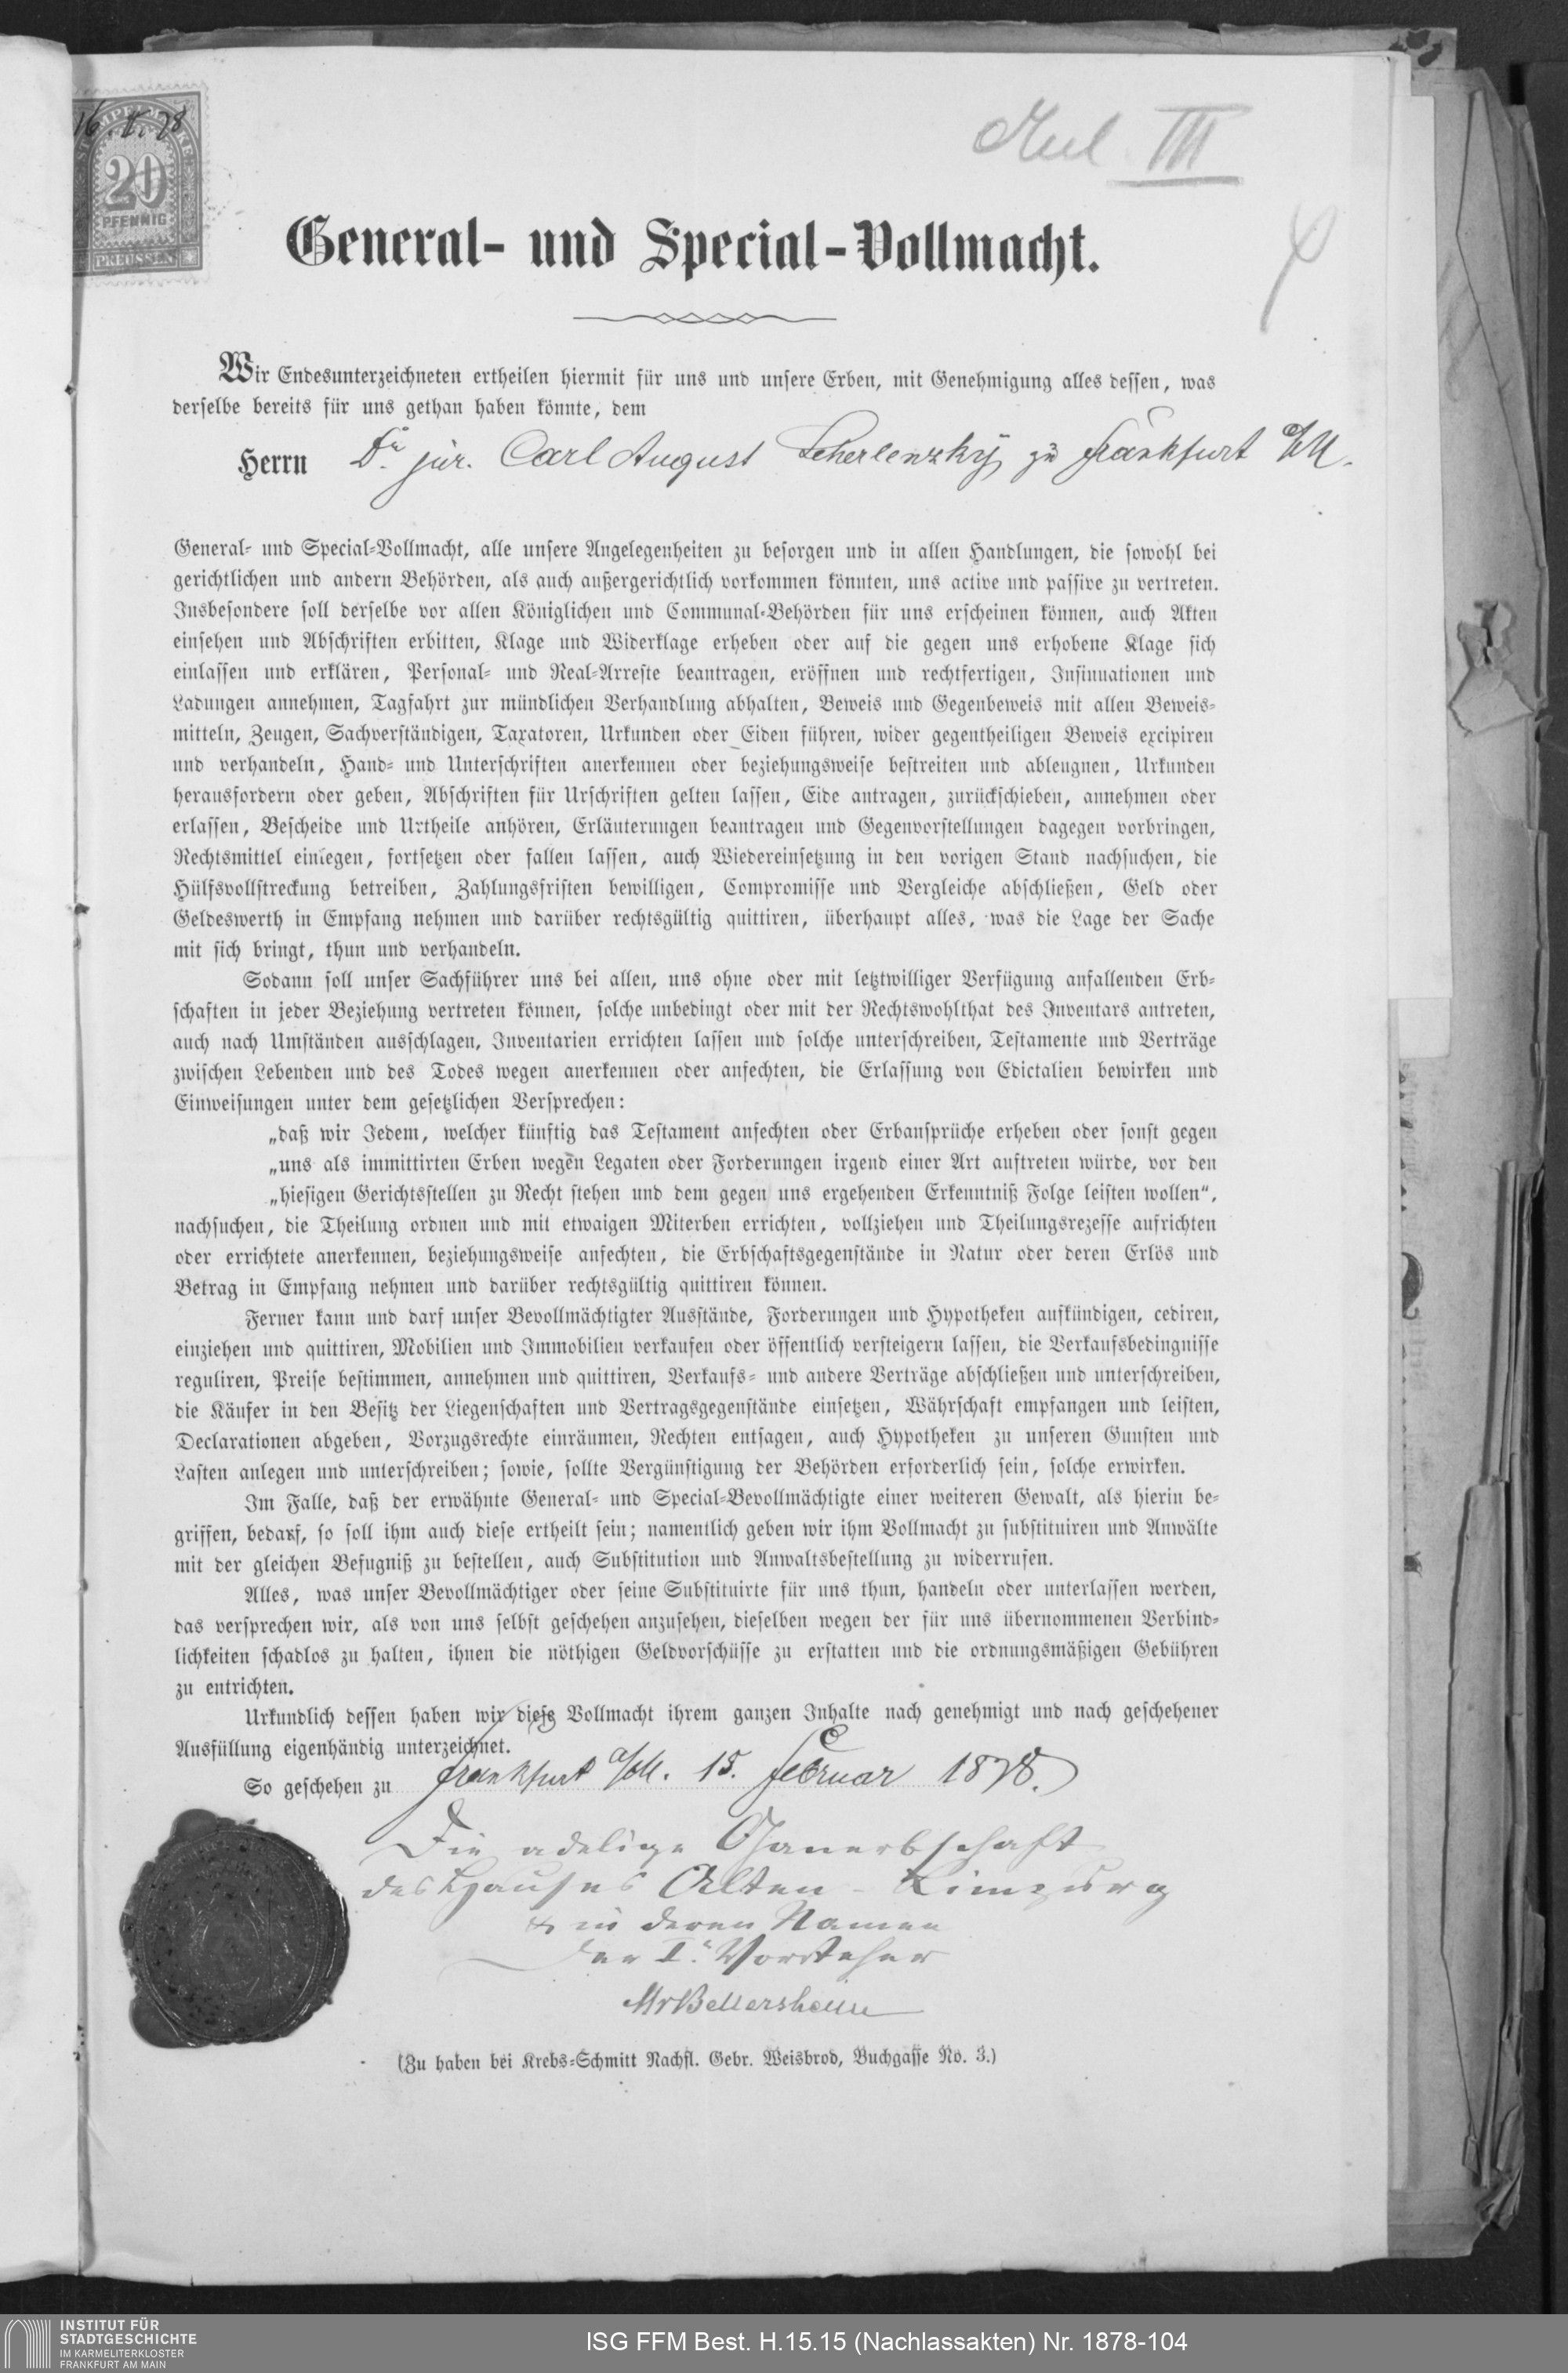 16. 2. 78
STEMPELMARKE
20
PFENNIG
PREUSSEN
III
General- und Special-Vollmacht.
Wir Endesunterzeichneten ertheilen hiermit für uns und unsere Erben, mit Genehmigung alles dessen, was
derselbe bereits für uns gethan haben könnte, dem
Herrn Dr. jur. Carl August Scherlenzky zu Frankfurt a/M.
General- und Special-Vollmacht, alle unsere Angelegenheiten zu besorgen und in allen Handlungen, die sowohl bei
gerichtlichen und andern Behörden, als auch außergerichtlich vorkommen könnten, uns active und passive zu vertreten.
Insbesondere soll derselbe vor allen Königlichen und Communal-Behörden für uns erscheinen können, auch Akten
einsehen und Abschriften erbitten, Klage und Widerklage erheben oder auf die gegen uns erhobene Klage sich
einlassen und erklären, Personal- und Real-Arreste beantragen, eröffnen und rechtfertigen, Insinuationen und
Ladungen annehmen, Tagfahrt zur mündlichen Verhandlung abhalten, Beweis und Gegenbeweis mit allen Beweis-
mitteln, Zeugen, Sachverständigen, Taxatoren, Urkunden oder Eiden führen, wider gegentheiligen Beweis excipiren
und verhandeln, Hand- und Unterschriften anerkennen oder beziehungsweise bestreiten und ableugnen, Urkunden
herausfordern oder geben, Abschriften für Urschriften gelten lassen, Eide antragen, zurückschieben, annehmen oder
erlassen, Bescheide und Urtheile anhören, Erläuterungen beantragen und Gegenvorstellungen dagegen vorbringen,
Rechtsmittel einlegen, fortsetzen oder fallen lassen, auch Wiedereinsetzung in den vorigen Stand nachsuchen, die
Hülfsvollstreckung betreiben, Zahlungsfristen bewilligen, Compromisse und Vergleiche abschließen, Geld oder
Geldeswerth in Empfang nehmen und darüber rechtsgültig quittiren, überhaupt alles, was die Lage der Sache
mit sich bringt, thun und verhandeln.
Sodann soll unser Sachführer uns bei allen, uns ohne oder mit letztwilliger Verfügung anfallenden Erb-
schaften in jeder Beziehung vertreten können, solche unbedingt oder mit der Rechtswohlthat des Inventars antreten,
auch nach Umständen ausschlagen, Inventarien errichten lassen und solche unterschreiben, Testamente und Verträge
zwischen Lebenden und des Todes wegen anerkennen oder anfechten, die Erlassung von Edictalien bewirken und
Einweisungen unter dem gesetzlichen Versprechen:
„daß wir Jedem, welcher künftig das Testament anfechten oder Erbansprüche erheben oder sonst gegen
„uns als immittirten Erben wegen Legaten oder Forderungen irgend einer Art auftreten würde, vor den
„hiesigen Gerichtsstellen zu Recht stehen und dem gegen uns ergehenden Erkenntniß Folge leisten wollen“,
nachsuchen, die Theilung ordnen und mit etwaigen Miterben errichten, vollziehen und Theilungsrezesse aufrichten
oder errichtete anerkennen, beziehungsweise anfechten, die Erbschaftsgegenstände in Natur oder deren Erlös und
Betrag in Empfang nehmen und darüber rechtsgültig quittiren können.
Ferner kann und darf unser Bevollmächtigter Ausstände, Forderungen und Hypotheken aufkündigen, cediren,
einziehen und quittiren, Mobilien und Immobilien verkaufen oder öffentlich versteigern lassen, die Verkaufsbedingnisse
reguliren, Preise bestimmen, annehmen und quittiren, Verkaufs- und andere Verträge abschließen und unterschreiben,
die Käufer in den Besitz der Liegenschaften und Vertragsgegenstände einsetzen, Währschaft empfangen und leisten,
Declarationen abgeben, Vorzugsrechte einräumen, Rechten entsagen, auch Hypotheken zu unseren Gunsten und
Lasten anlegen und unterschreiben; sowie, sollte Vergünstigung der Behörden erforderlich sein, solche erwirken.
Im Falle, daß der erwähnte General- und Special-Bevollmächtigte einer weiteren Gewalt, als hierin be-
griffen, bedarf, so soll ihm auch diese ertheilt sein; namentlich geben wir ihm Vollmacht zu substituiren und Anwälte
mit der gleichen Befugniß zu bestellen, auch Substitution und Anwaltsbestellung zu widerrufen.
Alles, was unser Bevollmächtiger oder seine Substituirte für uns thun, handeln oder unterlassen werden,
das versprechen wir, als von uns selbst geschehen anzusehen, dieselben wegen der für uns übernommenen Verbind-
lichkeiten schadlos zu halten, ihnen die nöthigen Geldvorschüsse zu erstatten und die ordnungsmäßigen Gebühren
zu entrichten.
Urkundlich dessen haben wir diese Vollmacht ihrem ganzen Inhalte nach genehmigt und nach geschehener
Ausfüllung eigenhändig unterzeichnet.
So geschehen zu Frankfurt a/M. 15. Februar 1878.
Die adelige Ganerbschaft
des Hauses Alten-Limpurg
& in deren Namen
der Ir. Vorsteher
MvBellersheim
(Zu haben bei Krebs-Schmitt Nachfl. Gebr. Weisbrod, Buchgasse No. 3.)
INSTITUT FÜR
STADTGESCHICHTE
IM KARMELITERKLOSTER
FRANKFURT AM MAIN
ISG FFM Best. H.15.15 (Nachlassakten) Nr. 1878-104